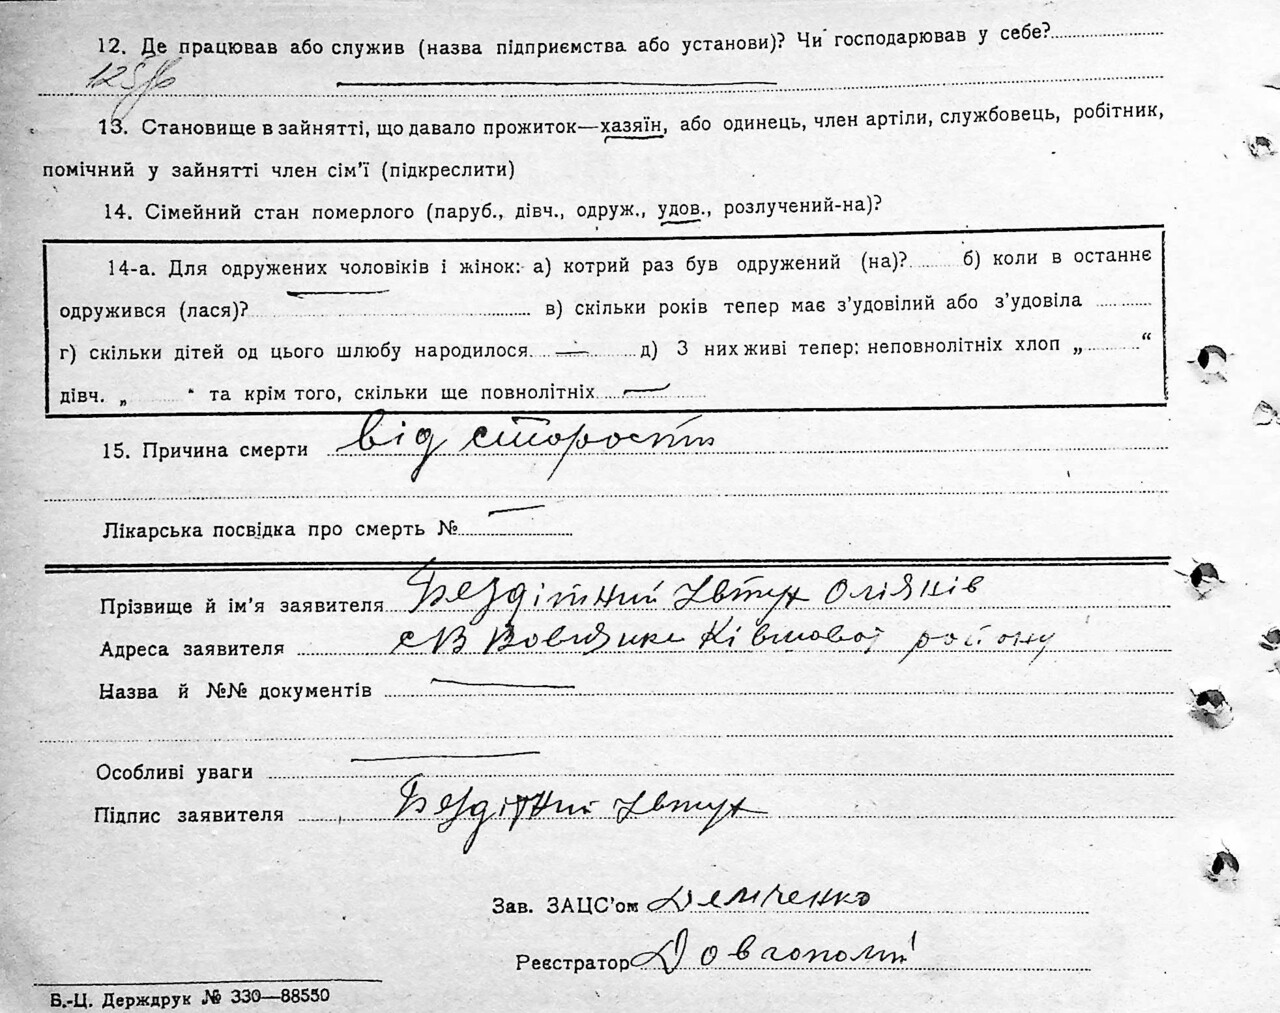 12. Де працював або служив (назва підприємства або установи)? Чи господарював у себе?
13. Становище в зайнятті, що давало прожиток—хазяїн, або одинець, член артіли, службовець, робітник,
помічний у зайнятті член сім'ї (підкреслити)
14. Сімейний стан померлого (паруб., дівч., одруж., удов., розлучений-на)?
14-а. Для одружених чоловіків і жінок: а) котрий раз був одружений (на)? б) коли в останнє
одружився (лася)? в) скільки років тепер має з'удовілий або з'удовіла
г) скільки дітей од цього шлюбу народилося — д) З них живі тепер: неповнолітніх хлоп „ “
дівч. „ “ та крім того, скільки ще повнолітніх —
15. Причина смерти від старости
Лікарська посвідка про смерть № —
Прізвище й ім'я заявителя Бездітний Явтух
Адреса заявителя району
Назва й №№ документів —
Особливі уваги —
Підпис заявителя Бездітний Явтух
Зав. ЗАЦС'ом Демченко
Реєстратор Довгополий
Б.-Ц. Держдрук № 330—88550